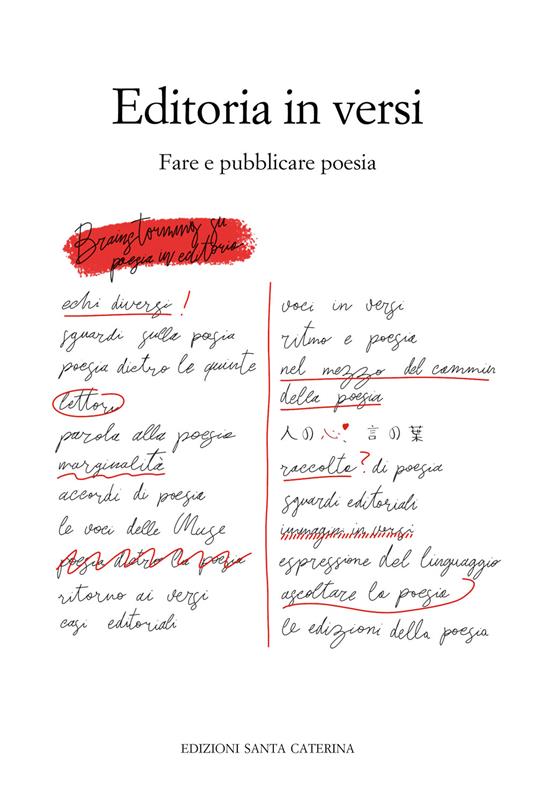 Editoria in versi
Fare e pubblicare poesia
Brainstorming su
poesia in editoria
echi diversi !
sguardi sulla poesia
poesia dietro le quinte
lettori
parola alla poesia
marginalità
accordi di poesia
le voci delle Muse
poesia dietro la poesia
ritorno ai versi
casi editoriali
voci in versi
ritmo e poesia
nel mezzo del cammin
della poesia
人の心、言の葉
raccolta ? di poesia
sguardi editoriali
immagini in versi
espressione del linguaggio
ascoltare la poesia
le edizioni della poesia
EDIZIONI SANTA CATERINA